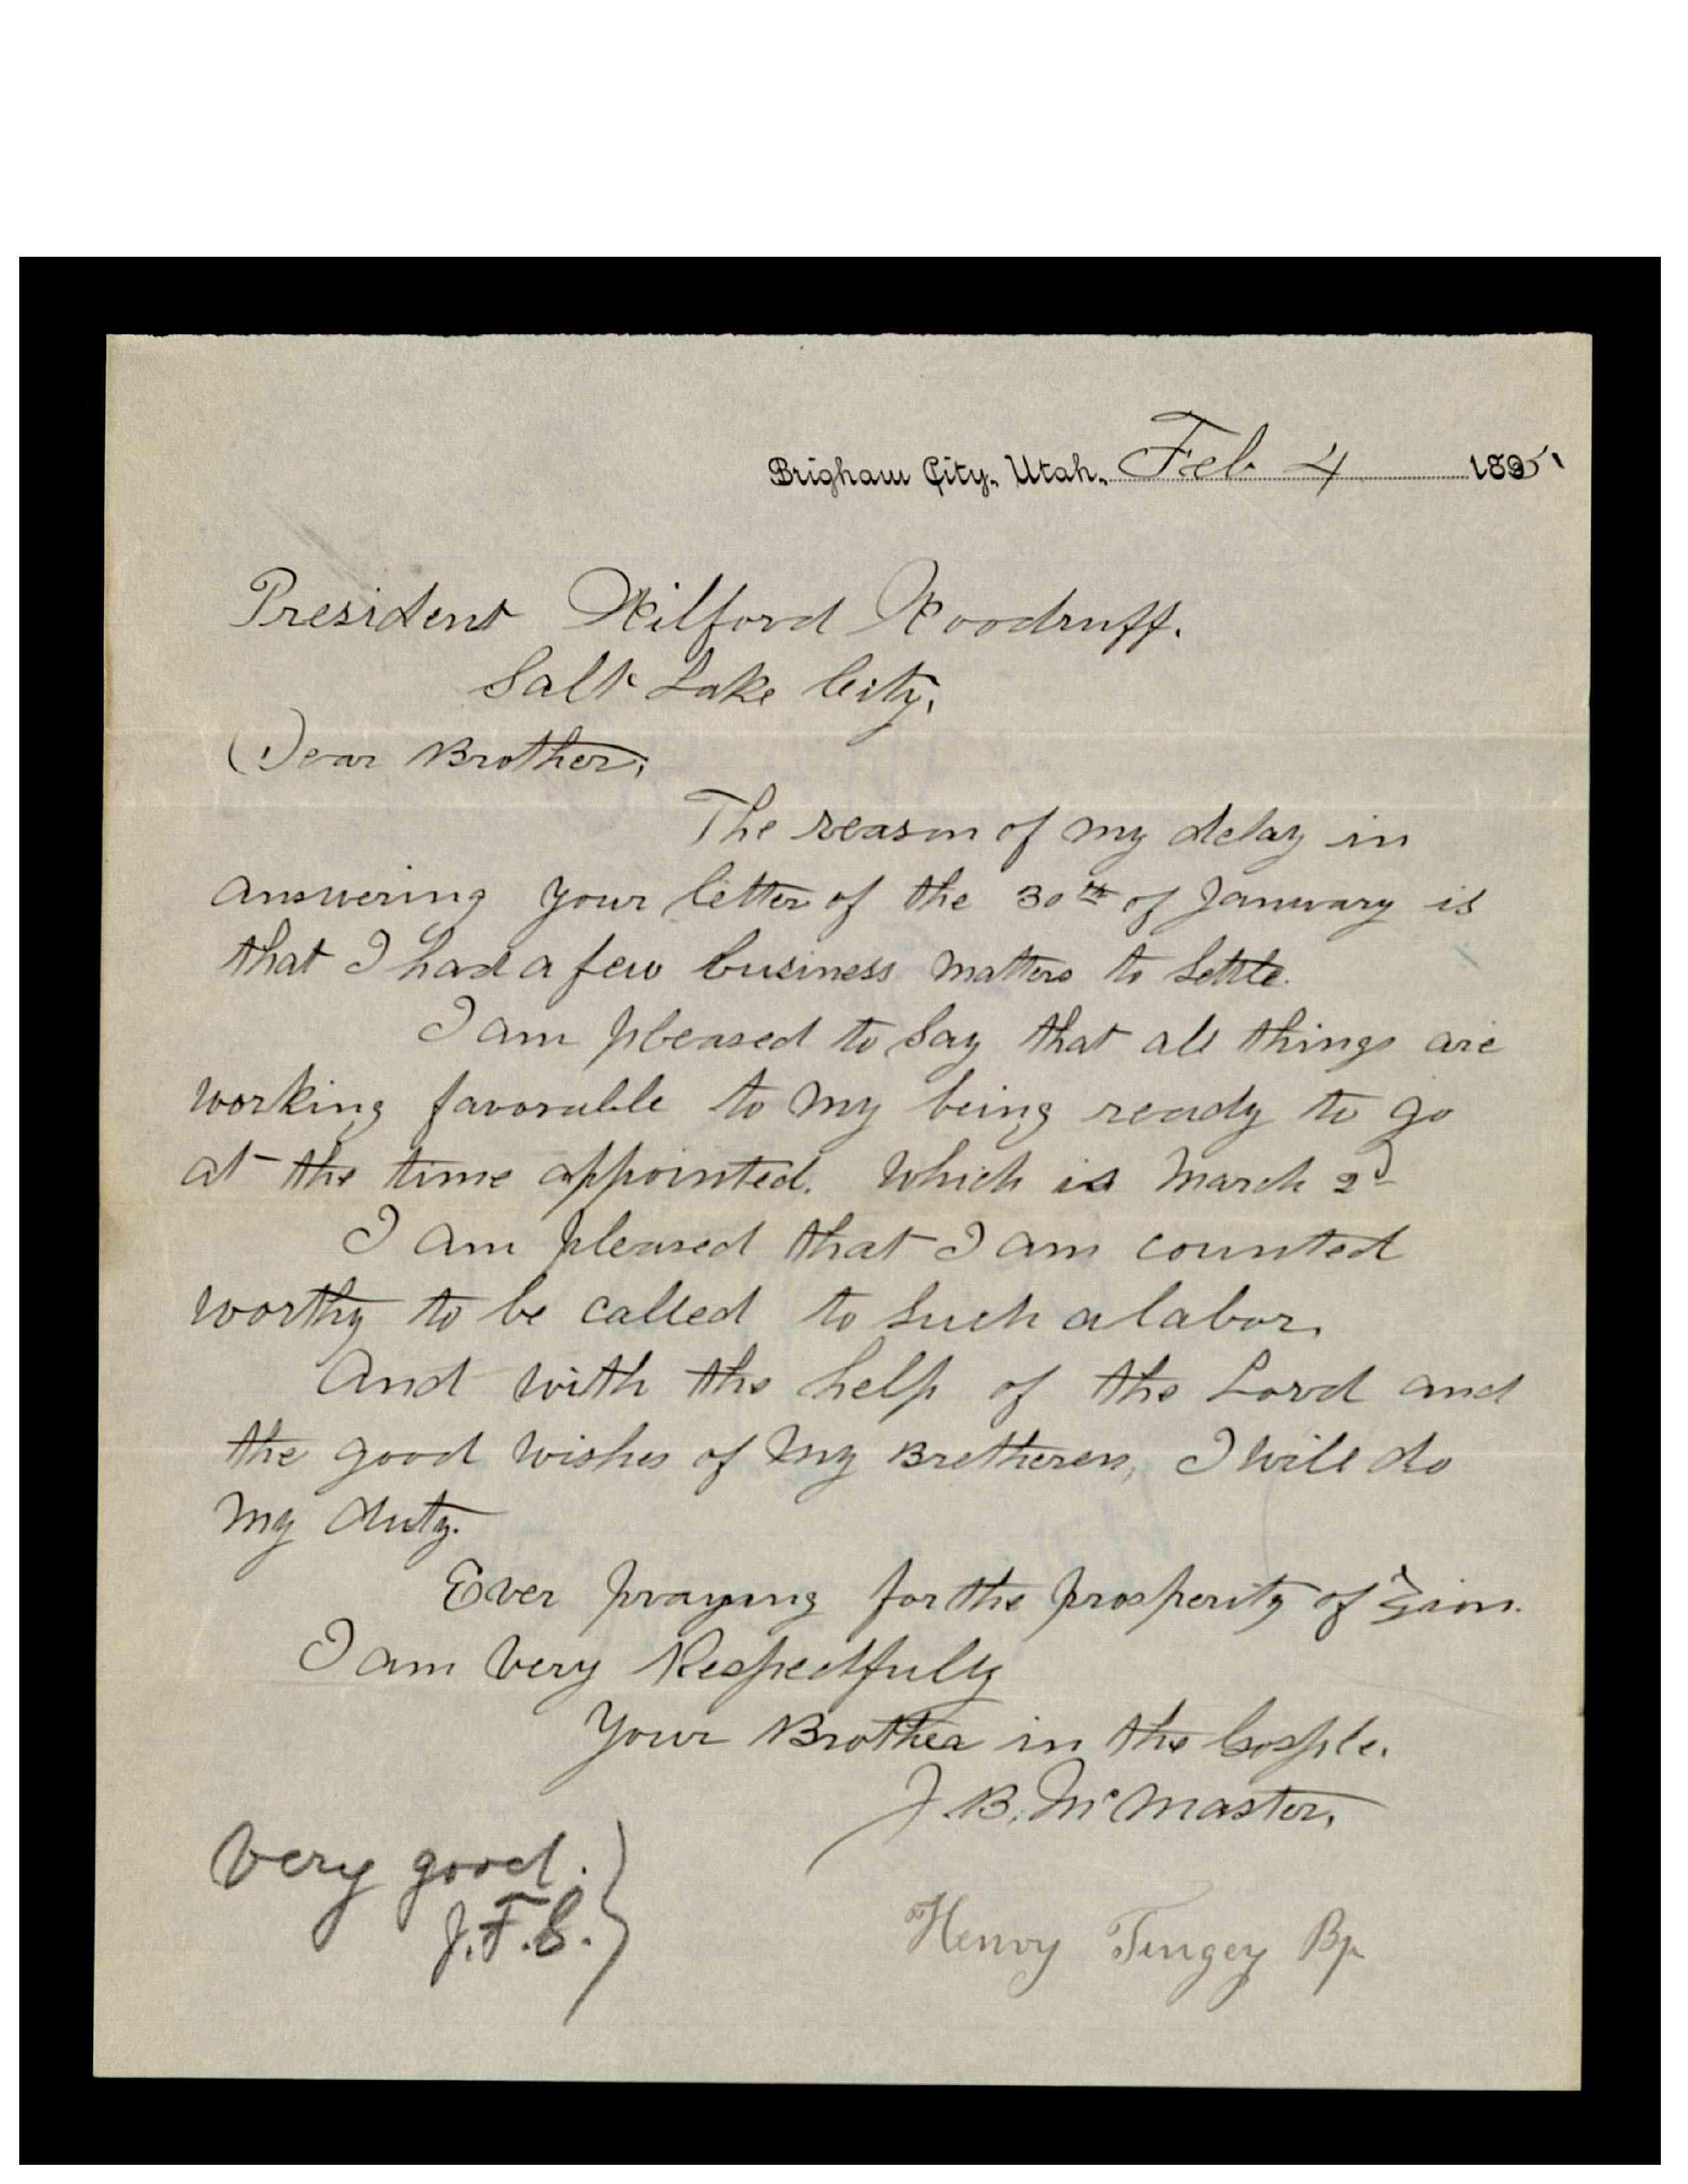 Brigham City, Utah, Feb 4 1895
President Wilford Woodruff.
Salt Lake City,
Dear Brother,
The reason of my delay in
answering your letter of the 30th of January is
that I had a few business matters to settle.
I am pleased to say that all things are
working favorable to my being ready to go
at the time appointed. which is March 2d
I am pleased that I am counted
worthy to be called to such a labor,
And with the help of the Lord and
the good wishes of my Bretheren, I will do
my duty.
Ever praying for the prosperity of Zion.
I am very Respectfully
Your Brother in the Gosple.
J. B. McMaster,
very good.
J.F.S.
Henry Tingey Bp